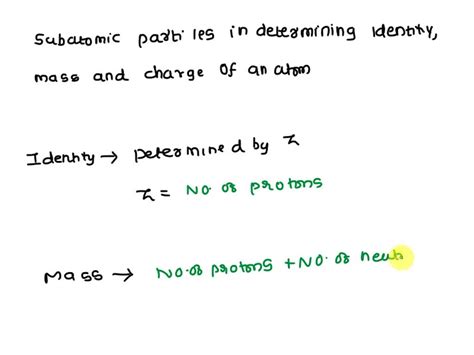 Subatomic particles in determining Identity,
mass and charge of an atom
Identity → Determined by Z
Z = No. of protons
Mass → No. of protons + No. of neut